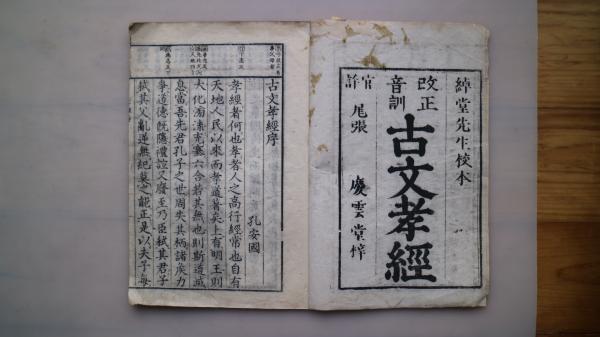 綽堂先生校本
改正音訓
古文孝經
官許
尾張
慶雲堂梓
古文孝經序
孔安國
孝經者何也孝者人之高行經常也自有
天地人民以來而孝道著矣上有明王則
大化滂流充塞六合若其無也則斯道滅
息當吾先君孔子之世周失其柄諸矦力
爭道德既隱禮誼又廢至乃臣弑其君子
弑其父亂逆無紀莫之能正是以夫子每